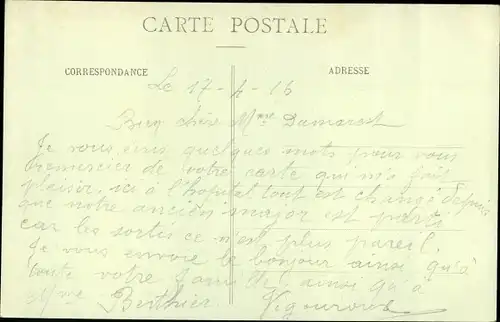 CARTE POSTALE
CORRESPONDANCE
ADRESSE
Le 17-4-16
Bien chère Mme Damarest
Je vous ecris quelques mots pour vous
remercier de votre carte qui m'a fait
plaisir, ici à l'hopital tout est changé depuis
que notre ancien major est parti
car les sortis ce n'est plus pareil,
Je vous envoie le bonjour ainsi qu'à
toute votre famille ainsi qu'à
Mme Berthier Vigouroux